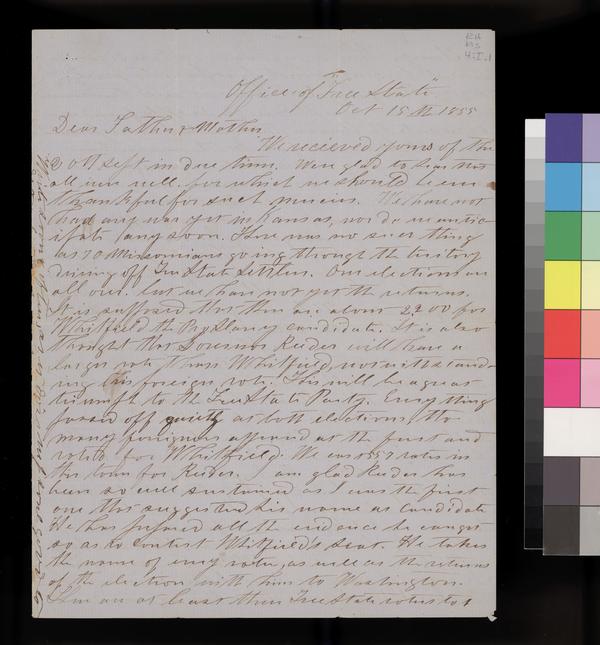 RH
MS
4:I.1
Office of "Free State"
Oct 15th 1855
Dear Father & Mother
We recieved yours of the
20th Sept in due time. Were glad to learn that
all were well. for which we should be ever
thankful for such mercies. We have not
had any war yet in Kansas, nor do we antic
ipate any soon. There was no such thing
as 70 Missourians going through the teritory
driving off Free State settlers. Our elections are
all over. but we have not yet the returns.
It is supposed that there are about 2200 for
Whitfield the Pro Slavery candidate. It is also
thought that Governor Reeder will have a
larger vote than Whitfield, notwithstand-
ing this foreign vote. This will be a great
triumph to the Free State Party. Everything
passed off quietly at both elections, tho
many foreigners appeared at the first and
voted for Whitfield. We cast 557 votes in
this town for Reeder. I am glad Reeder has
been so well sustained as I was the first
one that suggested his name as candidate
He has prepared all the evidence he caught
so as to contest Whitfield's seat. He takes
the name of every voter, as well as the returns
of the election with him to Washington.
There are at least three Free State voters to 1